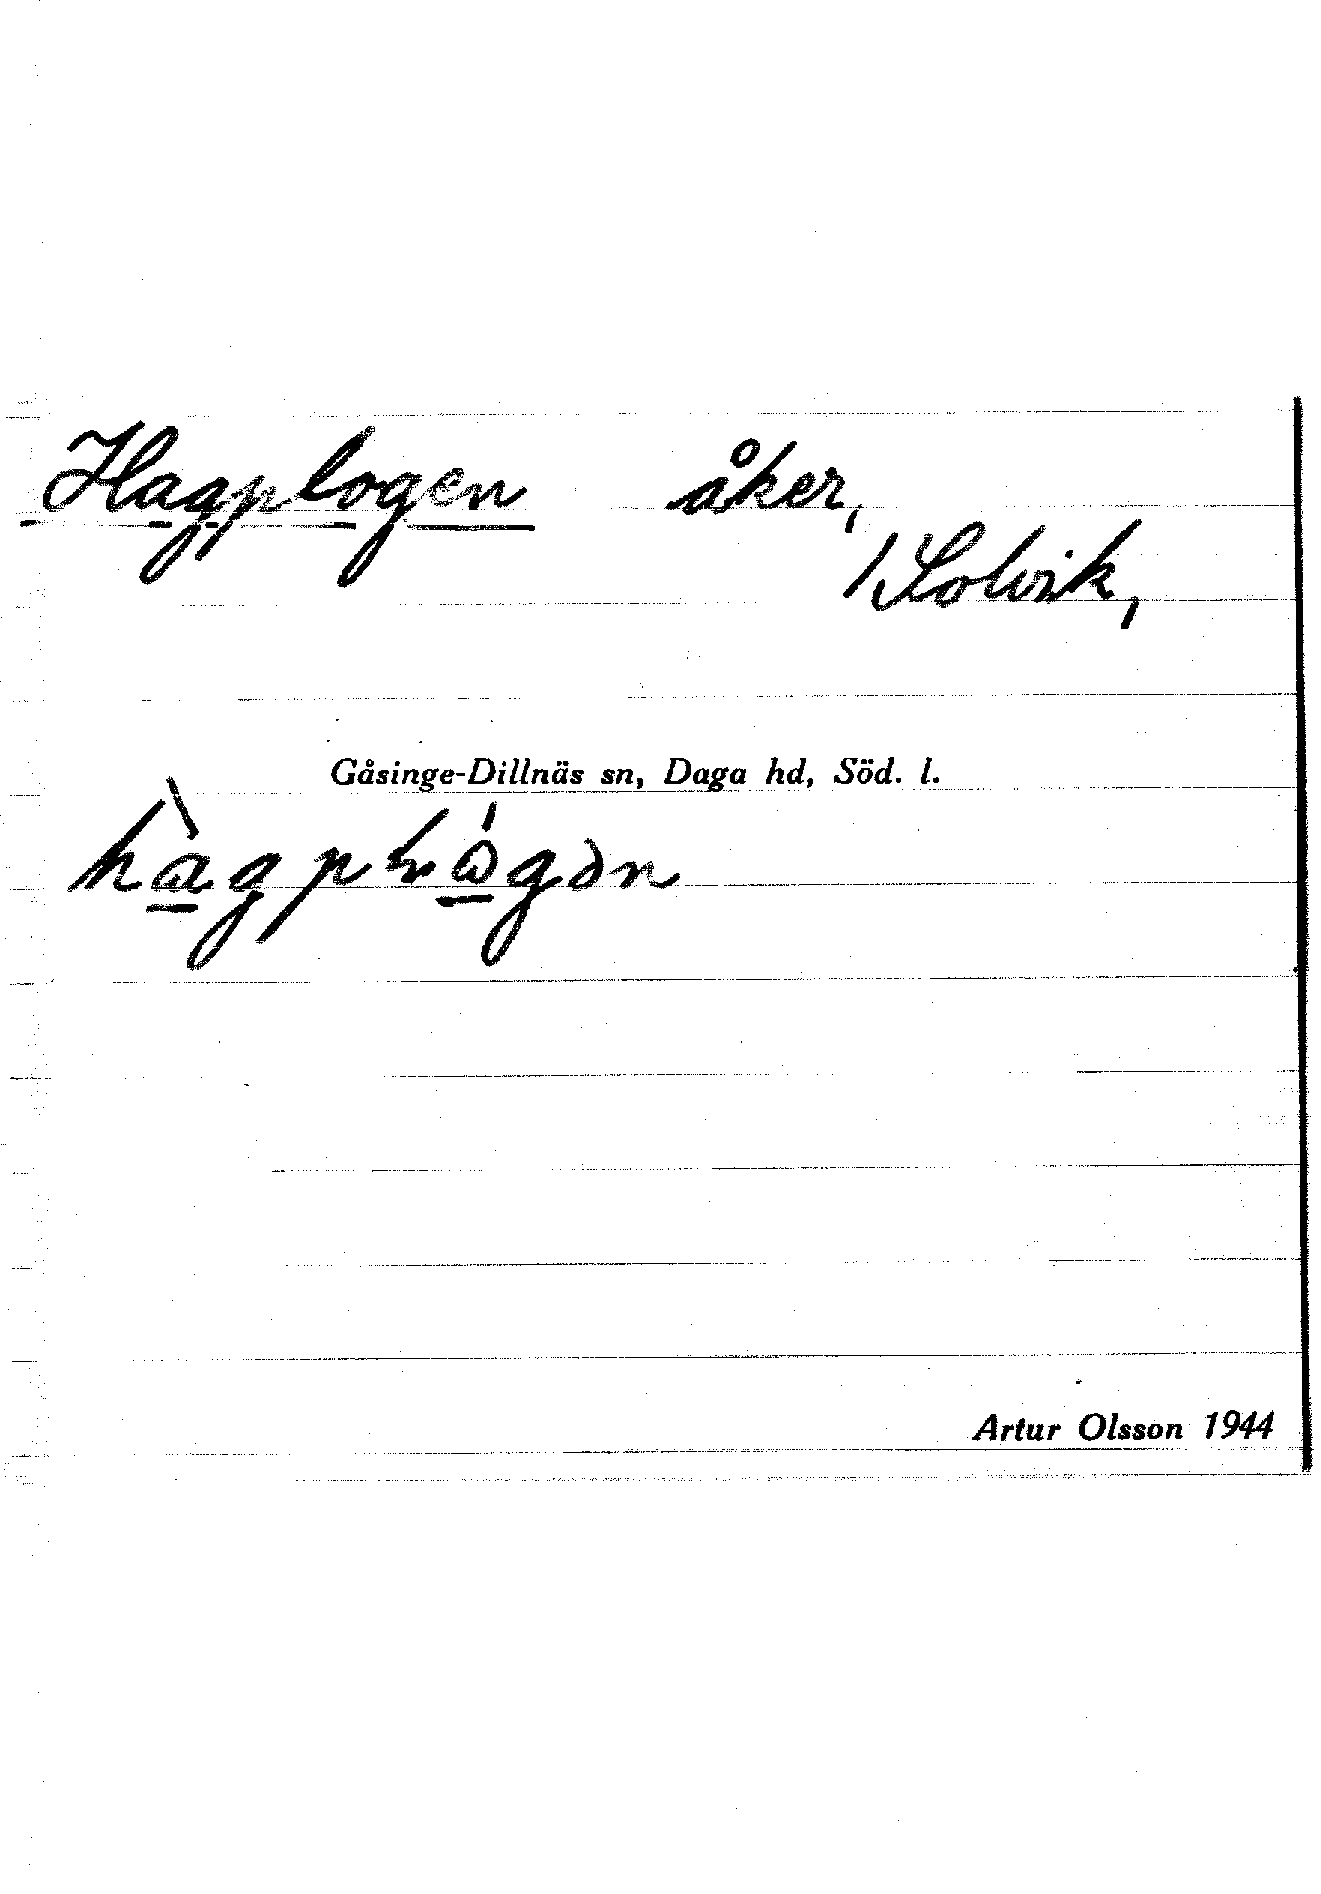 Hagplogen åker,
/Solvik,
Gåsinge-Dillnäs sn, Daga hd, Söd. l.
Artur Olsson 1944